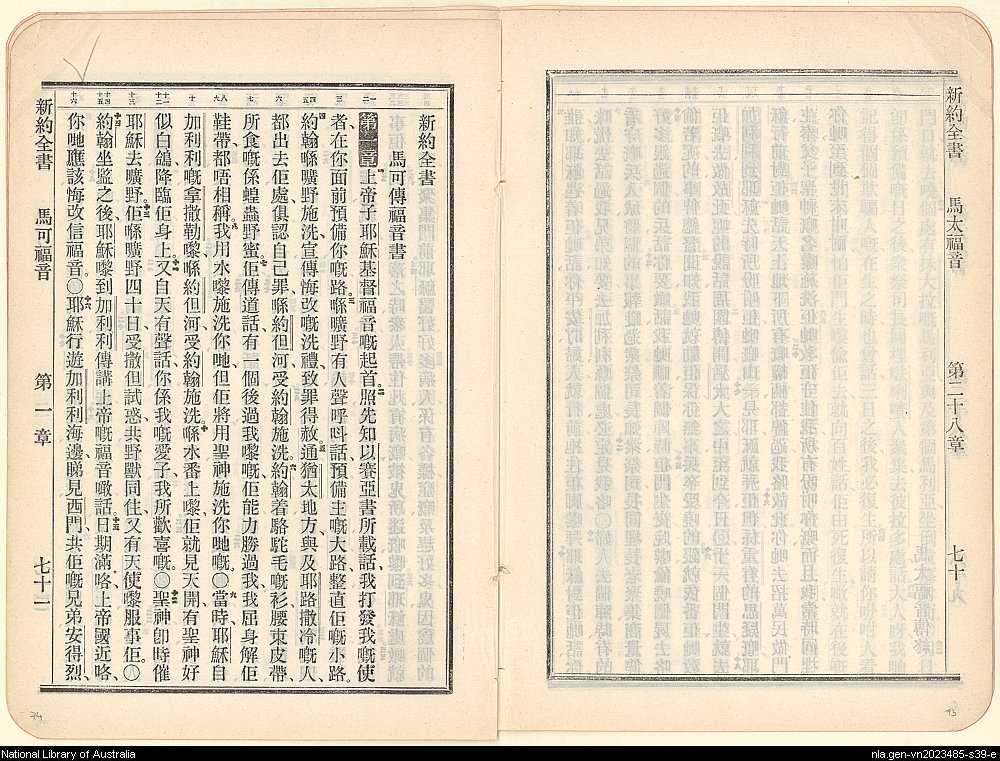 新約全書 馬太福音 第二十八章 七十
新約全書
馬可傳福音書
第一章 上帝子耶穌基督福音嘅起首。照先知以賽亞書所載話我打發我嘅使
者在你面前預備你嘅路喺曠野有人聲呼呌話預備主嘅大路整直佢嘅小路。
約翰喺曠野施洗宣傳悔改嘅洗禮致罪得赦通猶太地方與及耶路撒冷嘅人
都出去佢處俱認自己罪喺約但河受約翰施洗。約翰着駱駝毛嘅衫腰束皮帶、
所食嘅係蝗蟲野蜜。佢傳道話有一個後過我嚟嘅佢能力勝過我我屈身解佢
鞋帶都唔相稱。我用水嚟施洗你哋但佢將用聖神施洗你哋嘅。〇當時耶穌自
加利利嘅拿撒勒嚟喺約但河受約翰施洗。喺水番上嚟佢就見天開有聖神好
似白鴿降臨佢身上。又自天有聲話你係我嘅愛子我所歡喜嘅。〇聖神卽時催
耶穌去曠野。佢喺曠野四十日受撒但試惑共野獸同住又有天使嚟服事佢。〇
約翰坐監之後耶穌嚟到加利利傳講上帝嘅福音噉話。日期滿咯上帝國近咯、
你哋應該悔改信福音。〇耶穌行遊加利利海邊睇見西門共佢嘅兄弟安得烈
新約全書 馬可福音 第一章 七十一
74
National Library of Australia
nla.gen-vn2023485-s39-e